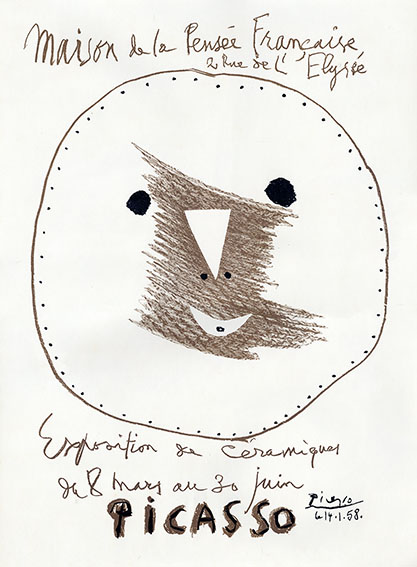 Maison de la Pensée Française
2 Rue de L'Elysée
Exposition de céramiques
du 8 mars au 30 juin
PICASSO
Picasso
le 14.1.58.